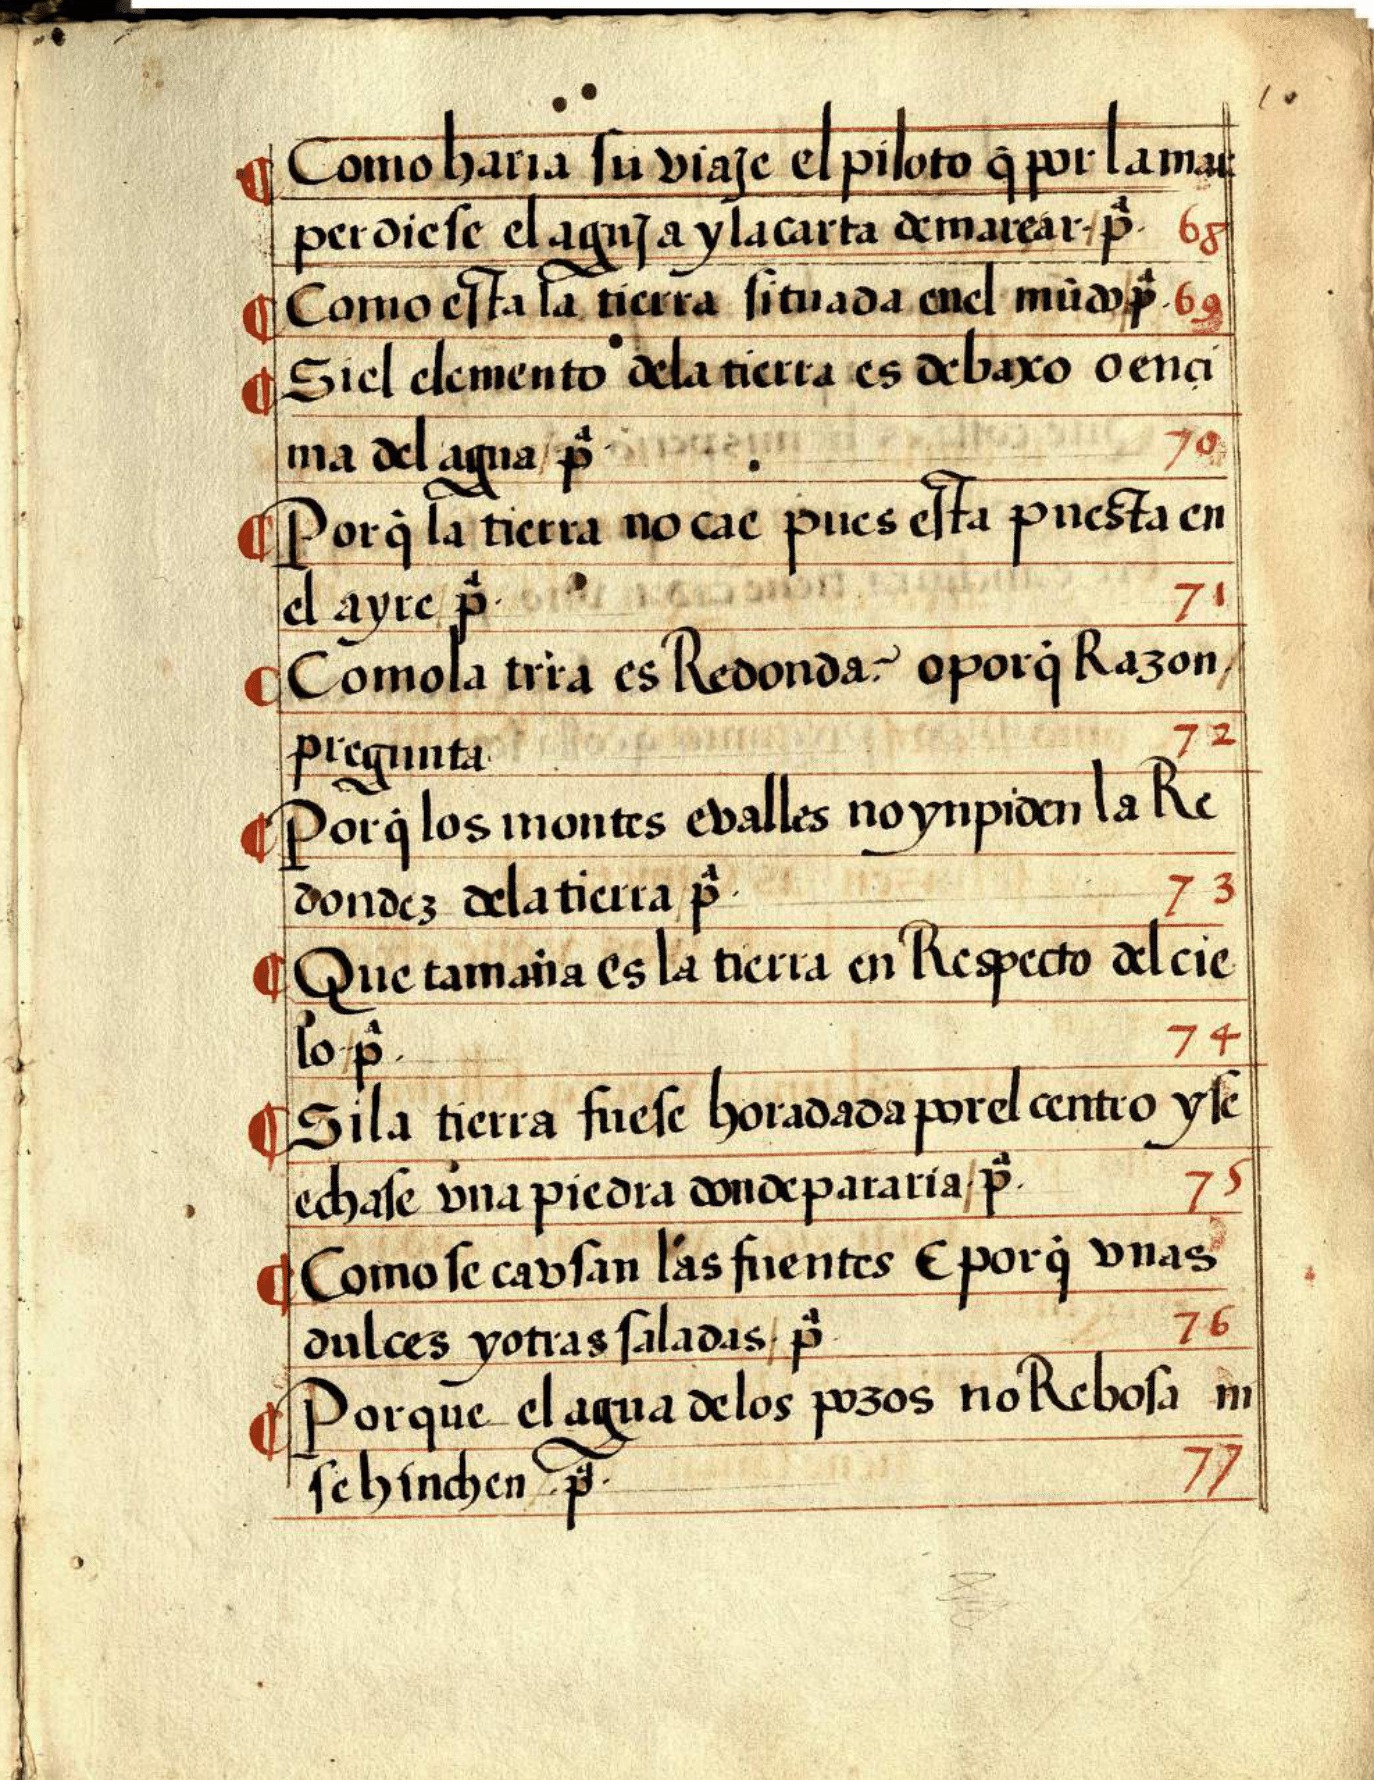 ¶ Como haria su viaje el piloto q̃ por la mar
perdiese el aguja y la carta de marear / pª. 68
¶ Como esta la tierra situada en el mũdo pª. 69
¶ Si el elemento de la tierra es debaxo o ençi
ma del agua / pª. 70
¶ Porq̃ la tierra no cae pues esta puesta en
el ayre / pª. 71
¶ Como la trr̃a es Redonda. o porq̃ Razon /
pregunta. 72
¶ Porq̃ los montes e valles no ynpiden la Re
dondez de la tierra / pª. 73
¶ Que tamaña es la tierra en Respecto del cie
lo / pª. 74
¶ Si la tierra fuese horadada por el centro y se
echase vna piedra donde pararia / pª. 75
¶ Como se cavsan las fuentes E porq̃ vnas
dulces y otras saladas / pª. 76
¶ Porque el agua de los pozos no Rebosa ni
se hinchen / pª. 77